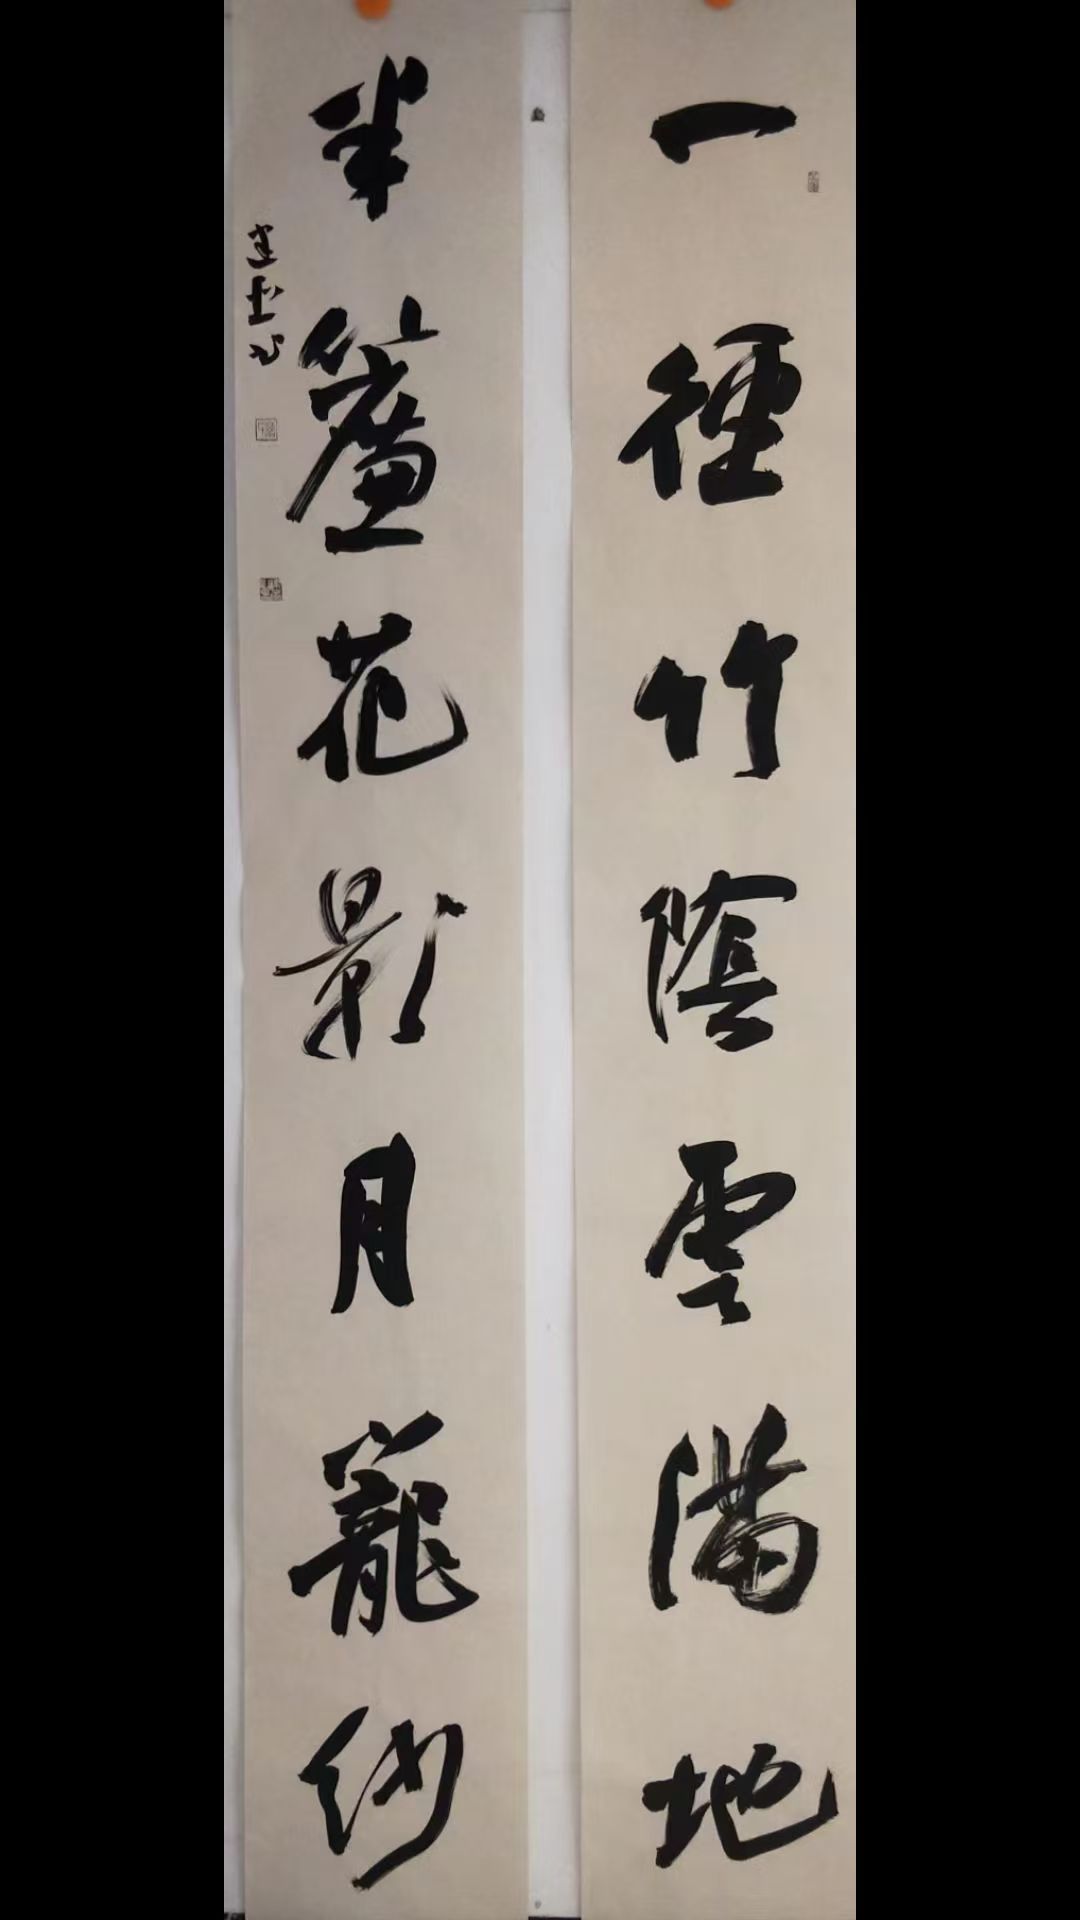 一徑竹陰雲滿地
半簾花影月籠紗